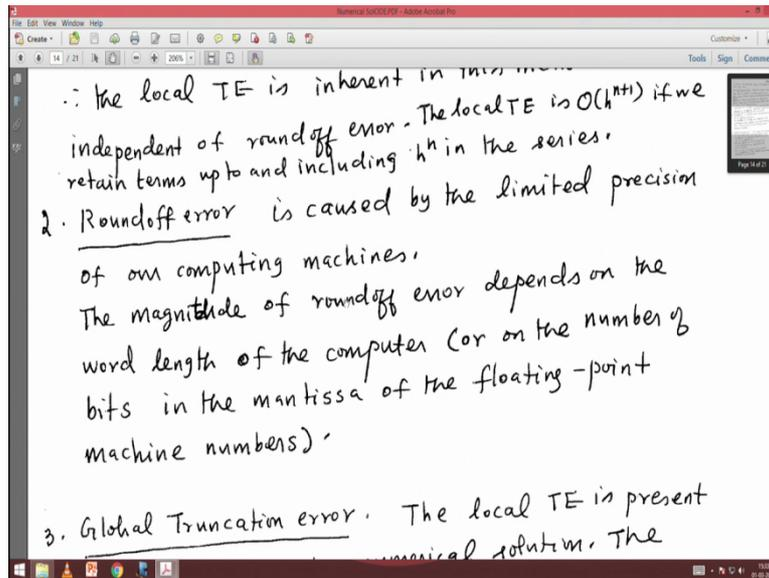 Numerical SolODE.PDF - Adobe Acrobat Pro
File Edit View Window Help
Create
Customize
14 / 21
200%
Tools Sign Comme
∴ the local TE is inherent in this
independent of roundoff error. The local TE is O(h^{n+1}) if we
retain terms up to and including h^n in the series.
2. Roundoff error is caused by the limited precision
of our computing machines.
The magnitude of roundoff error depends on the
word length of the computer (or on the number of
bits in the mantissa of the floating-point
machine numbers).
3. Global Truncation error. The local TE is present
numerical solution. The
Page 14 of 21